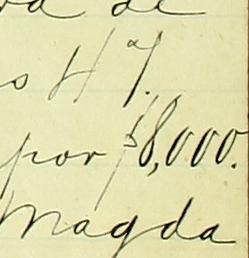 de
47.
por $8,000.
Magda